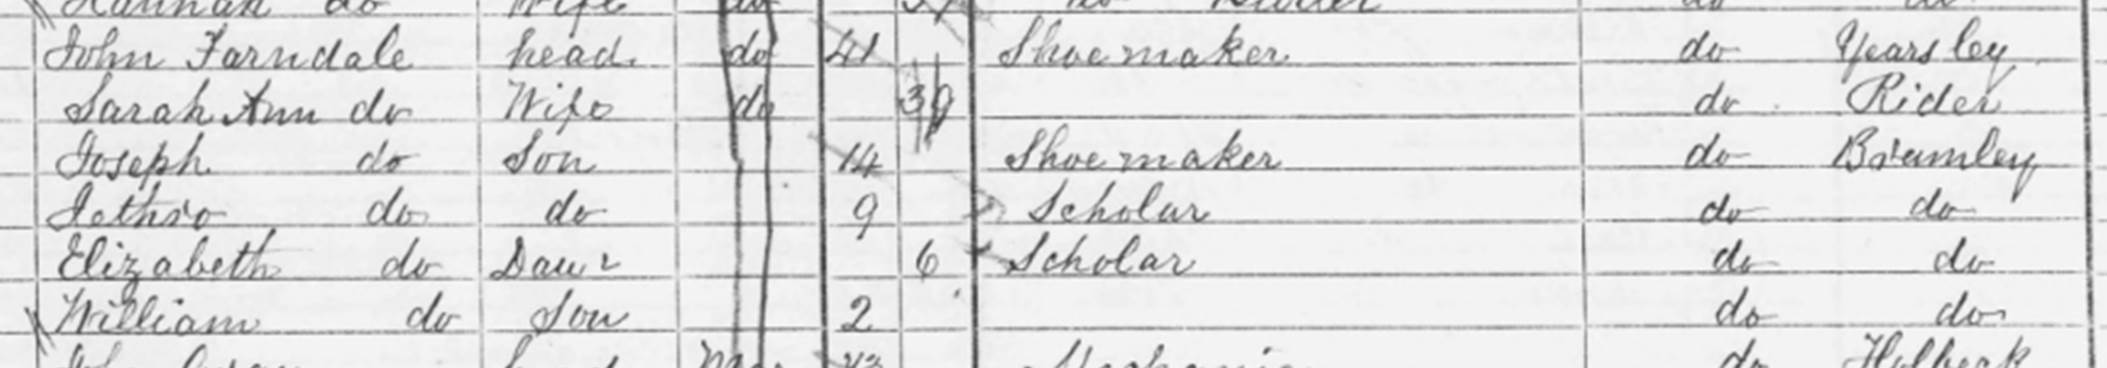 Hannah do Wife do
John Farndale head do 41 Shoemaker do Yearsley
Sarah Ann do Wife do 39 do Rider
Joseph do Son 14 Shoemaker do Bramley
Jethro do do 9 Scholar do do
Elizabeth do Daur 6 Scholar do do
William do Son 2 do do
John head Mar Mechanic do Holbeck